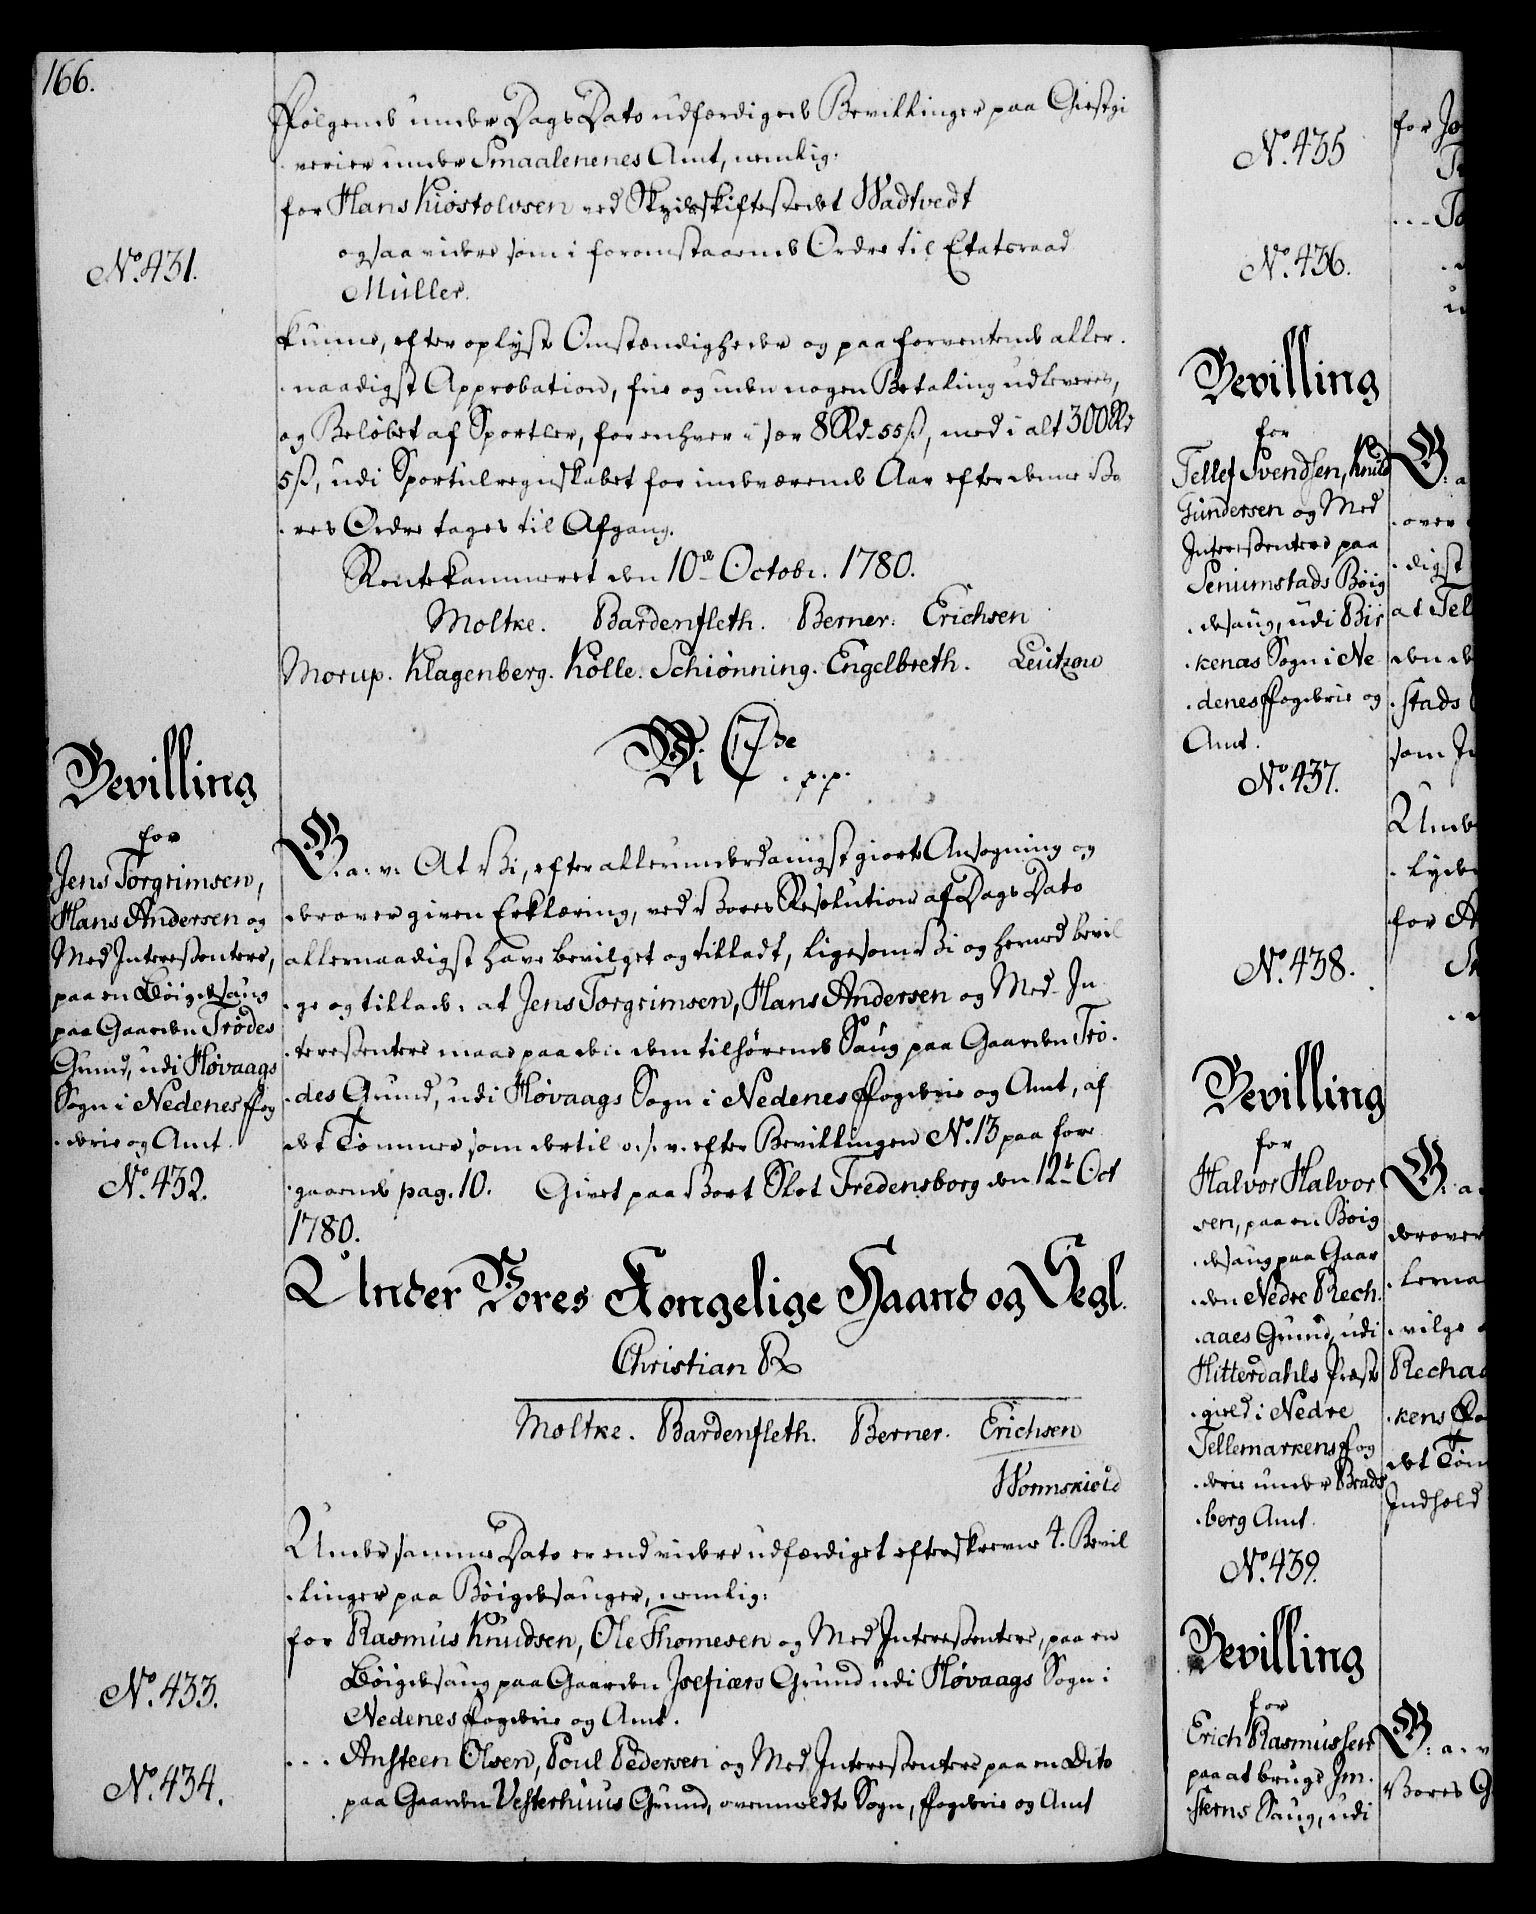 166.
Følgende under Dags Dato udfærdigede Bevillinger paa Giestgi
verier under Smaalenenes Amt, nemlig:
for Hans Kiøstolvsen ved Skydsskiftestedet Wadtvedt
No. 431.
ogsaa videre som i foromstaaende Ordre til Etatsraad
Müller.
kunne, efter oplyste Omstændigheder og paa forventende aller-
naadigst Approbation, frie og uden nogen Betaling udleveres,
og Beløbet af Sportler, for enhver i sær 8 Rd. 55 ß, med i alt 300 Rd
5 ß, udi Sportulregnskabet for indværende Aar efter denne Vo
res Ordre tages til Afgang.
Rentekammeret den 10de Octobr. 1780.
Moltke. Bardenfleth. Berner. Erichsen
Morup. Klagenberg. Kølle. Schiønning. Engelbreth. Leützow
Vi C 7de
p. p.
Bevilling
for
Jens Torgrimsen,
Hans Andersen og
Med Interessentere,
paa en Bøigdesaug
paa Gaarden Trødes
Grund, udi Høvaags
Sogn i Nedenes Fog
derie og Amt.
No. 432.
G. a. v. At Vi, efter allerunderdanigst giorte Ansøgning og
derover given Erklæring, ved Vores Resolution af Dags Dato
allernaadigst have bevilget og tilladt, ligesom Vi og hermed bevil
ge og tillade, at Jens Torgrimsen, Hans Andersen og Med-In
teressentere maae paa den dem tilhørende Saug paa Gaarden Trø-
des Grund, udi Høvaags Sogn i Nedenes Fogderie og Amt, af
det Tømmer som dertil o. s. v. efter Bevillingen No. 13 paa fore
gaaende pag. 10. Givet paa Vort Slot Fredensborg den 12t Oct
1780.
Under Vores Kongelige Haand og Segl.
Christian R
Moltke. Bardenfleth. Berner. Erichsen
Wormskiold
Under samme Dato er end videre udfærdiget efterskrevne 4. Bevil
linger paa Bøigdesauger, nemlig:
for Rasmus Knudsen, Ole Thomesen og Med Interessentere, paa en
No. 433.
Bøigdesaug paa Gaarden Isefiærs Grund udi Høvaags Sogn i
Nedenes Fogderie og Amt.
No. 434.
- - - Ansteen Olsen, Poul Pedersen og Med Interessentere paa en Dito
paa Gaarden Vesterhuus Grund, ovenmeldte Sogn, Fogderie og Amt
No. 435
No. 436.
Bevilling
for
Tellef Svendsen, Knud
Gundersen og Med
Interessentere paa
Seniumstads Bøig
desaug, udi Bir
kenæs Sogn i Ne
denes Fogderie og
Amt.
No. 437.
No. 438.
Bevilling
for
Halvor Halvor
sen, paa en Bøig
desaug paa Gaar
den Nedre Rech-
aaes Grund, udi
Hitterdahls Præste
gield i Nedre
Tellemarkens Fog
derie under Brads
berg Amt.
No. 439.
Bevilling
for
Erich Rasmussen
paa at bruge Im-
sterns Saug, udi
for
G. a
over
digst
at Tell
den de
stads
som In
Unde
lyde
for A
G. a.
derover
lerna
vilge
Rechaa
kens Fo
det Tøm
Indhold
G. a. v
Vores G